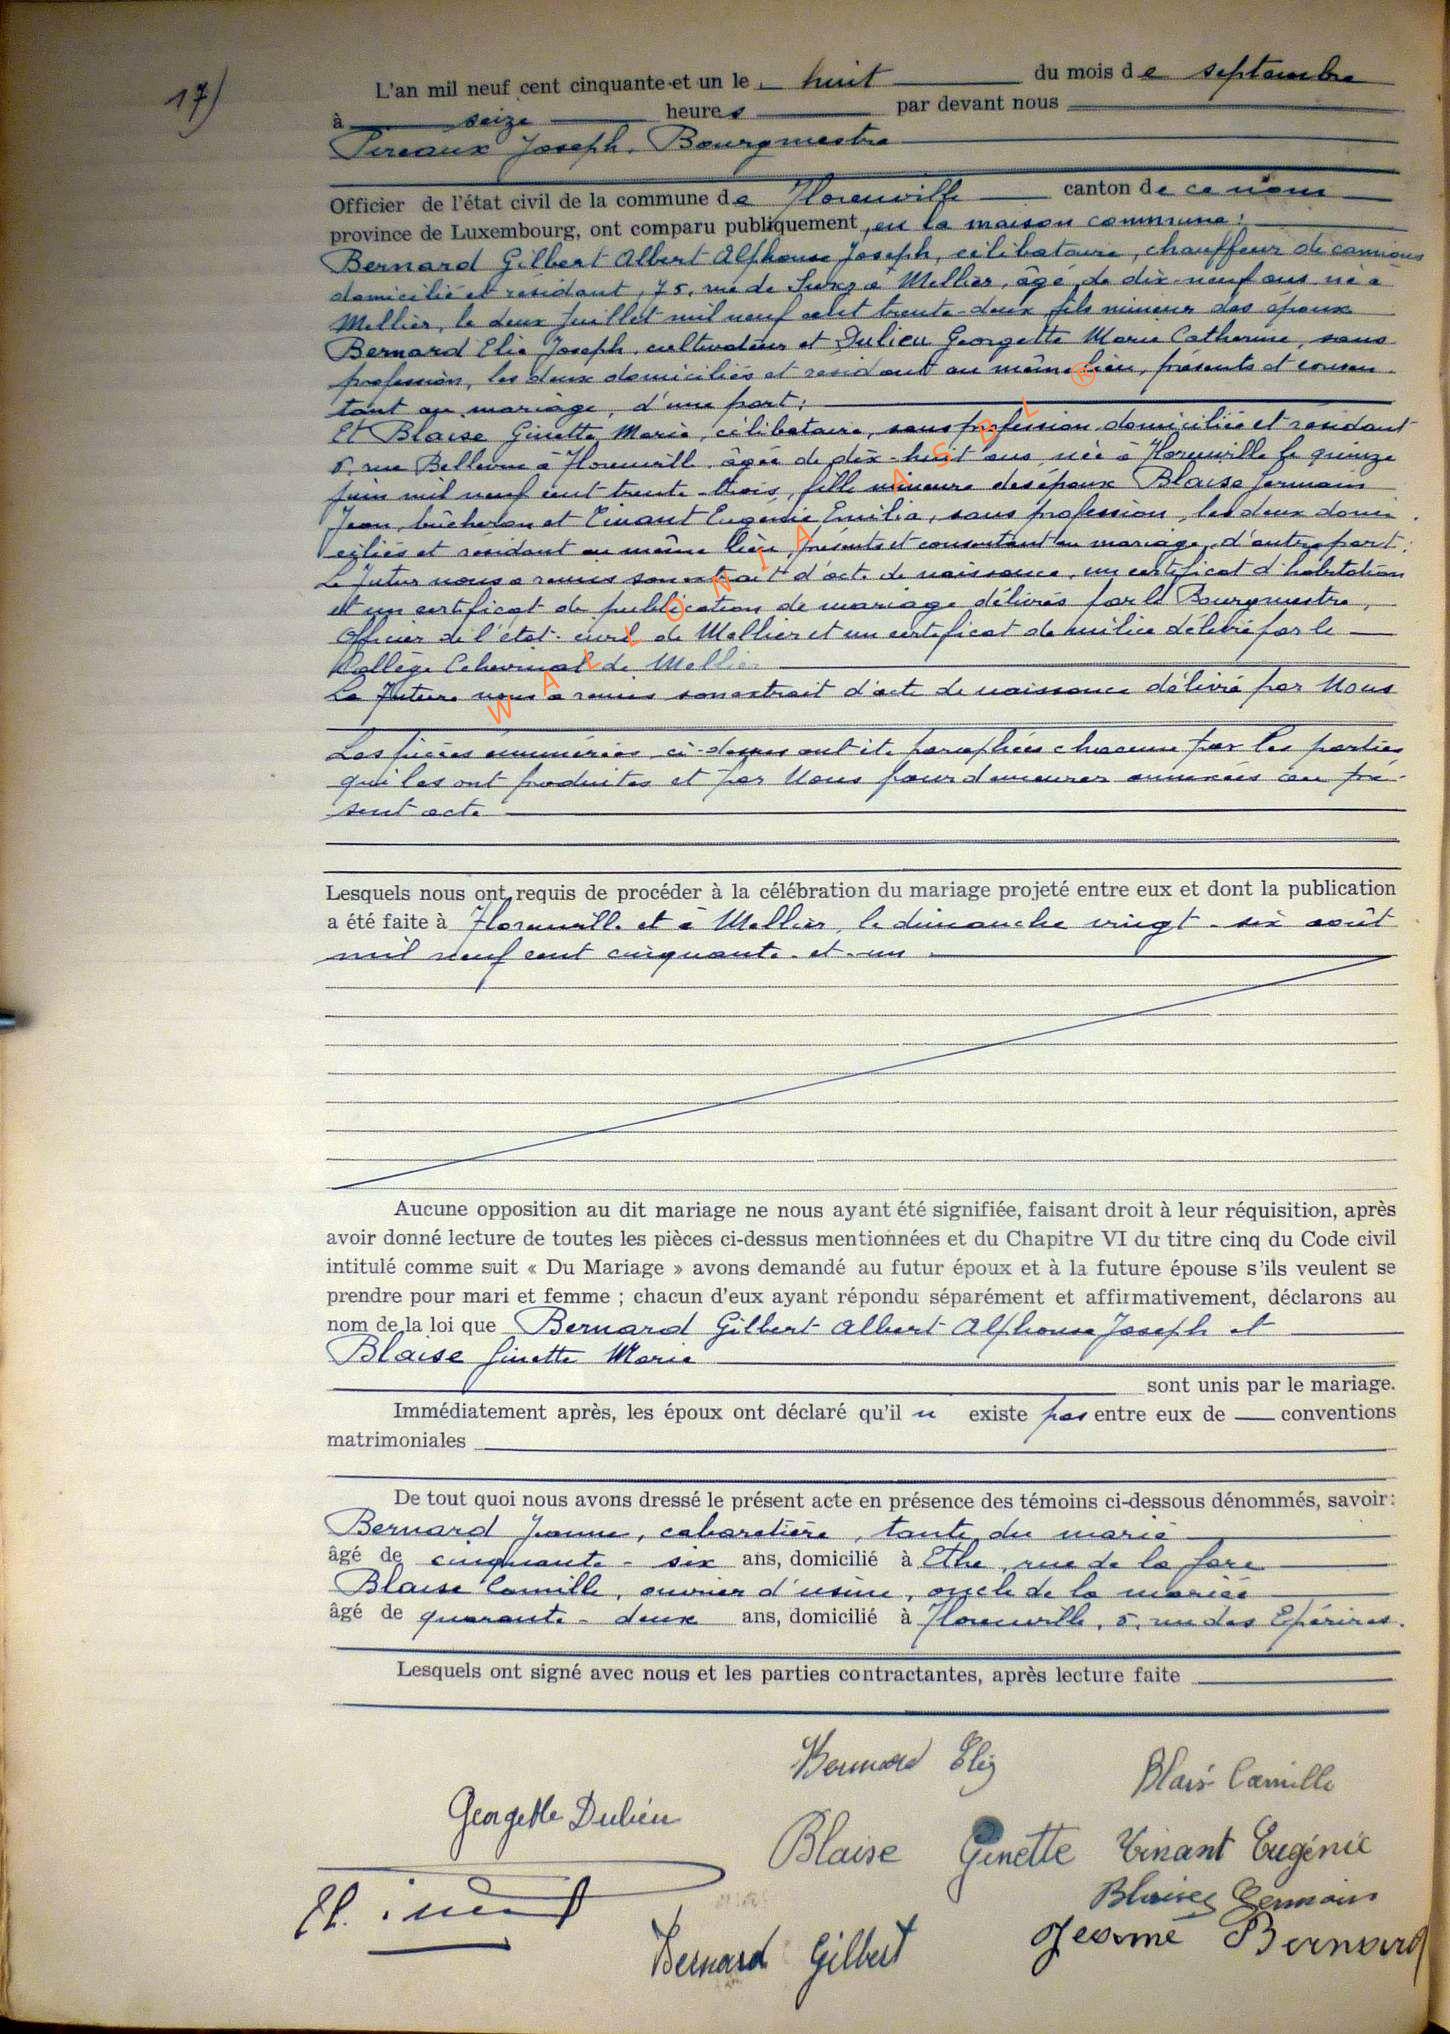 17)
L'an mil neuf cent cinquante et un le huit du mois de septembre
à seize heures par devant nous
Pireaux Joseph. Bourgmestre
Officier de l'état civil de la commune de Florenville canton de ce nom
province de Luxembourg, ont comparu publiquement, en la maison commune:
Bernard Gilbert Albert Alphonse Joseph, célibataire, chauffeur de camions
domicilié et résidant, 75, rue de Suxy à Mellier, âgé de dix-neuf ans né à
Mellier, le deux Juillet mil neuf cent trente-deux fils mineur des époux
Bernard Elie Joseph, cultivateur et Dulieu Georgette Marie Catherine, sans
profession, les deux domiciliés et résidant au même lieu, présents et consen-
tant au mariage, d'une part;
Et Blaise Ginette Marie, célibataire, sans profession domiciliée et résidant
5, rue Bellevue à Florenville, âgée de dix-huit ans, née à Florenville le quinze
juin mil neuf cent trente-trois, fille mineure des époux Blaise Germain
Jean, bûcheron et Tinant Eugénie Emilia, sans profession, les deux domi-
ciliés et résidant au même lieu, présents et consentant au mariage, d'autre part;
Le Futur nous a remis son extrait d'acte de naissance, un certificat d'habitation
et un certificat de publication de mariage délivrés par le Bourgmestre,
Officier de l'état-civil de Mellier et un certificat de milice délivré par le
Collège Echevinal de Mellier
La Future nous a remis son extrait d'acte de naissance délivré par Nous
Les pièces énumérées ci-dessus ont été paraphées chacune par les parties
qui les ont produites et par Nous pour demeurer annexées au pré-
sent acte
Lesquels nous ont requis de procéder à la célébration du mariage projeté entre eux et dont la publication
a été faite à Florenville et à Mellier, le dimanche vingt-six août
mil neuf cent cinquante-et-un
Aucune opposition au dit mariage ne nous ayant été signifiée, faisant droit à leur réquisition, après
avoir donné lecture de toutes les pièces ci-dessus mentionnées et du Chapitre VI du titre cinq du Code civil
intitulé comme suit « Du Mariage » avons demandé au futur époux et à la future épouse s'ils veulent se
prendre pour mari et femme ; chacun d'eux ayant répondu séparément et affirmativement, déclarons au
nom de la loi que Bernard Gilbert Albert Alphonse Joseph et
Blaise Ginette Marie
sont unis par le mariage.
Immédiatement après, les époux ont déclaré qu'il n existe pas entre eux de conventions
matrimoniales
De tout quoi nous avons dressé le présent acte en présence des témoins ci-dessous dénommés, savoir:
Bernard Jeanne, cabaretière, tante du marié
âgé de cinquante-six ans, domicilié à Ethe, rue de la gare
Blaise Camille, ouvrier d'usine, oncle de la mariée
âgé de quarante-deux ans, domicilié à Florenville, 5, rue des Epérires.
Lesquels ont signé avec nous et les parties contractantes, après lecture faite
Bernard Elie
Blaise Camille
Georgette Dulieu
Blaise Ginette Tinant Eugénie
Blaise Germain
Bernard Gilbert
Jeanne Bernard
WALLONIA ASBL ®